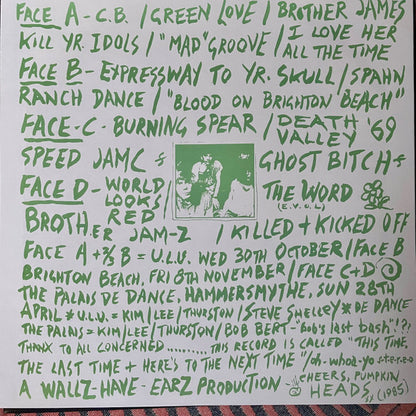 FACE A - C.B. / GREEN LOVE / BROTHER JAMES
KILL YR. IDOLS / "MAD" GROOVE / I LOVE HER ALL THE TIME
FACE B - EXPRESSWAY TO YR. SKULL / SPAHN
RANCH DANCE / "BLOOD ON BRIGHTON BEACH"
FACE - C - BURNING SPEAR / DEATH VALLEY '69
SPEED JAMC GHOST BITCH
FACE D - WORLD LOOKS RED THE WORD (E.V.O.L)
BROTHER JAM-Z / I KILLED + KICKED OFF
FACE A + 2/3 B = U.L.U. WED 30TH OCTOBER / FACE B
BRIGHTON BEACH, FRI 8TH NOVEMBER / FACE C+D
THE PALAIS DE DANCE, HAMMERSMYTHE, SUN 28TH
APRIL * U.L.U. = KIM / LEE / THURSTON / STEVE SHELLEY * DE DANCE
THE PALAIS = KIM / LEE / THURSTON / BOB BERT - "Bob's last bash"!?!
THANX TO ALL CONCERNED .......... THIS RECORD IS CALLED "THIS TIME,
THE LAST TIME + HERE'S TO THE NEXT TIME" /oh-whoa-yo s.t.e.r.e.o
A WALLZ-HAVE-EARZ PRODUCTION - CHEERS, PUMPKIN HEADS, (1985)